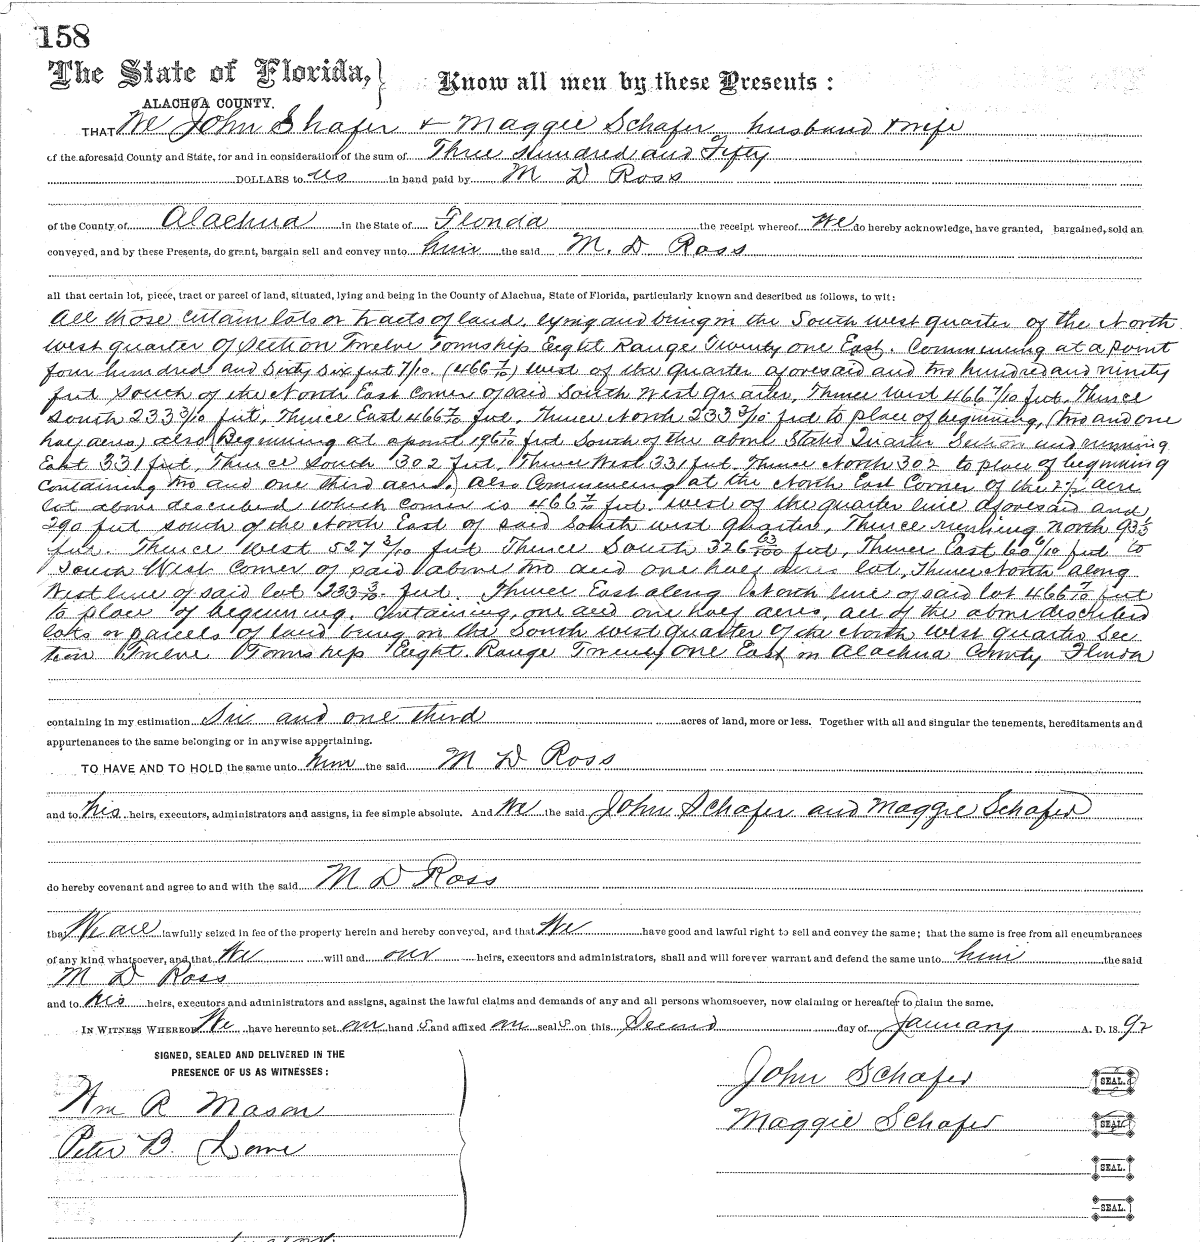 158
The State of Florida, } Know all men by these Presents:
ALACHUA COUNTY.
THAT We John Shafer & Maggie Schafer husband & wife
of the aforesaid County and State, for and in consideration of the sum of Three Hundred and Fifty
DOLLARS to us in hand paid by M D Ross
of the County of Alachua in the State of Florida the receipt whereof We do hereby acknowledge, have granted, bargained, sold an
conveyed, and by these Presents, do grant, bargain sell and convey unto him the said M. D Ross
all that certain lot, piece, tract or parcel of land, situated, lying and being in the County of Alachua, State of Florida, particularly known and described as follows, to wit:
All those certain lots or tracts of land, lying and being in the South west quarter of the North
west quarter of Section Twelve Township Eight Range Twenty one East. Commencing at a point
four hundred and Sixty Six feet 7/10. (466 7/10) west of the quarter aforesaid and two hundred and ninety
feet South of the North East Corner of said South West quarter, Thence West 466 7/10 feet. Thence
South 233 3/10 feet, Thence East 466 7/10 feet, Thence North 233 3/10 feet to place of beginning, (two and one
half acres) also (Beginning at a point 196 7/10 feet South of the above Stated Quarter Section and running
East 331 feet, Thence South 302 feet, Thence West 331 feet. Thence North 302 to place of beginning
Containing two and one third acres,) also Commencing at the North East Corner of the 2 1/2 acre
lot above described which corner is 466 7/10 feet. west of the quarter line aforesaid and
290 feet south of the North East of said South west quarter, Thence running North 93 1/3
feet. Thence West 527 3/10 feet Thence South 326 63/100 feet, Thence East 60 6/10 feet to
South West Corner of said above two and one half acres lot, Thence North along
West line of said lot 233 3/10 feet. Thence East along North line of said lot 466 7/10 feet
to place of beginning. Containing, one and one half acres, all of the above described
lots or parcels of land being in the South west quarter of the North West quarter Sec
tion Twelve Township Eight. Range Twenty one East in Alachua County Florida
containing in my estimation Six and one third acres of land, more or less. Together with all and singular the tenements, hereditaments and
appurtenances to the same belonging or in anywise appertaining.
TO HAVE AND TO HOLD the same unto him the said M D Ross
and to his heirs, executors, administrators and assigns, in fee simple absolute. And We the said John Schafer and Maggie Schafer
do hereby covenant and agree to and with the said M D Ross
that We are lawfully seized in fee of the property herein and hereby conveyed, and that We have good and lawful right to sell and convey the same; that the same is free from all encumbrances
of any kind whatsoever, and that We will and our heirs, executors and administrators, shall and will forever warrant and defend the same unto him the said
M D Ross
and to his heirs, executors and administrators and assigns, against the lawful claims and demands of any and all persons whomsoever, now claiming or hereafter to claim the same.
IN WITNESS WHEREOF We have hereunto set our hand s and affixed our seal s on this Second day of January A. D. 18 92
SIGNED, SEALED AND DELIVERED IN THE
PRESENCE OF US AS WITNESSES:
John Schafer SEAL.
Wm R Mason
Maggie Schafer SEAL.
Peter B.
SEAL.
SEAL.